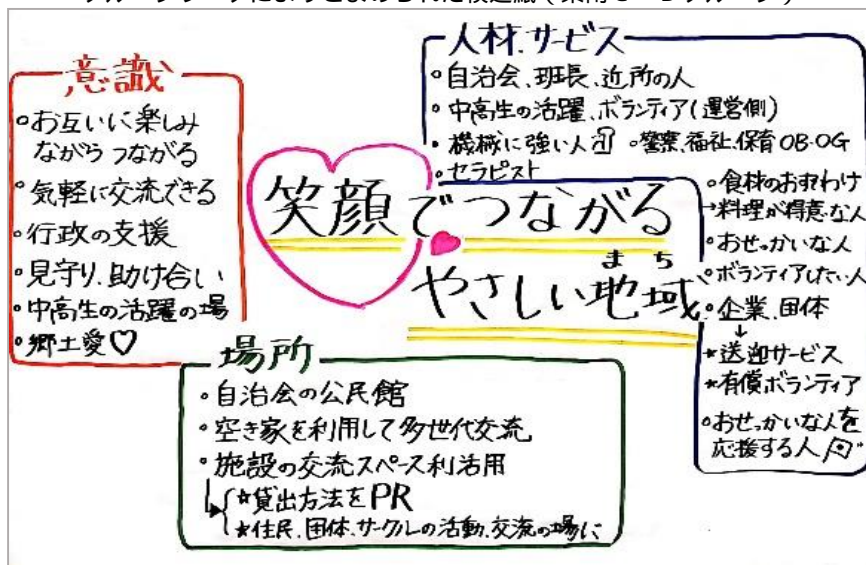 意識
・お互いに楽しみ
ながらつながる
・気軽に交流できる
・行政の支援
・見守り、助け合い
・中高生の活躍の場
・郷土愛♡
人材、サービス
・自治会、班長、近所の人
・中高生の活躍、ボランティア(運営側)
・機械に強い人 ・警察、福祉、保育OB・OG
・セラピスト
・食材のおすそわけ
→料理が得意な人
・おせっかいな人
・ボランティアしたい人
・企業、団体
↓
★送迎サービス
★有償ボランティア
・おせっかいな人を
応援する人
笑顔でつながる
まち
やさしい地域
場所
・自治会の公民館
・空き家を利用して多世代交流
・施設の交流スペース利活用
★貸出方法をPR
★住民、団体、サークルの活動、交流の場に